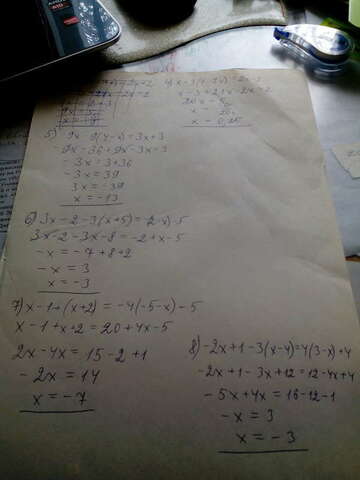 x - 3 + 21x - 2x = 2
20x = 5
x = 0,25
5) 9x - 9(4-x) = 3x + 3
9x - 36 + 9x - 3x = 3
- 3x = 3 + 36
- 3x = 39
3x = - 39
x = - 13
6) 3x - 2 - 3(x + 5) = - (2-x) - 5
3x - 2 - 3x - 8 = - 2 + x - 5
- x = - 7 + 8 + 2
- x = 3
x = - 3
7) x - 1 + (x + 2) = - 4(-5 - x) - 5
x - 1 + x + 2 = 20 + 4x - 5
2x - 4x = 15 - 2 + 1
- 2x = 14
x = - 7
8) - 2x + 1 - 3(x - 4) = 4(3 - x) + 4
- 2x + 1 - 3x + 12 = 12 - 4x + 4
- 5x + 4x = 16 - 12 - 1
- x = 3
x = - 3